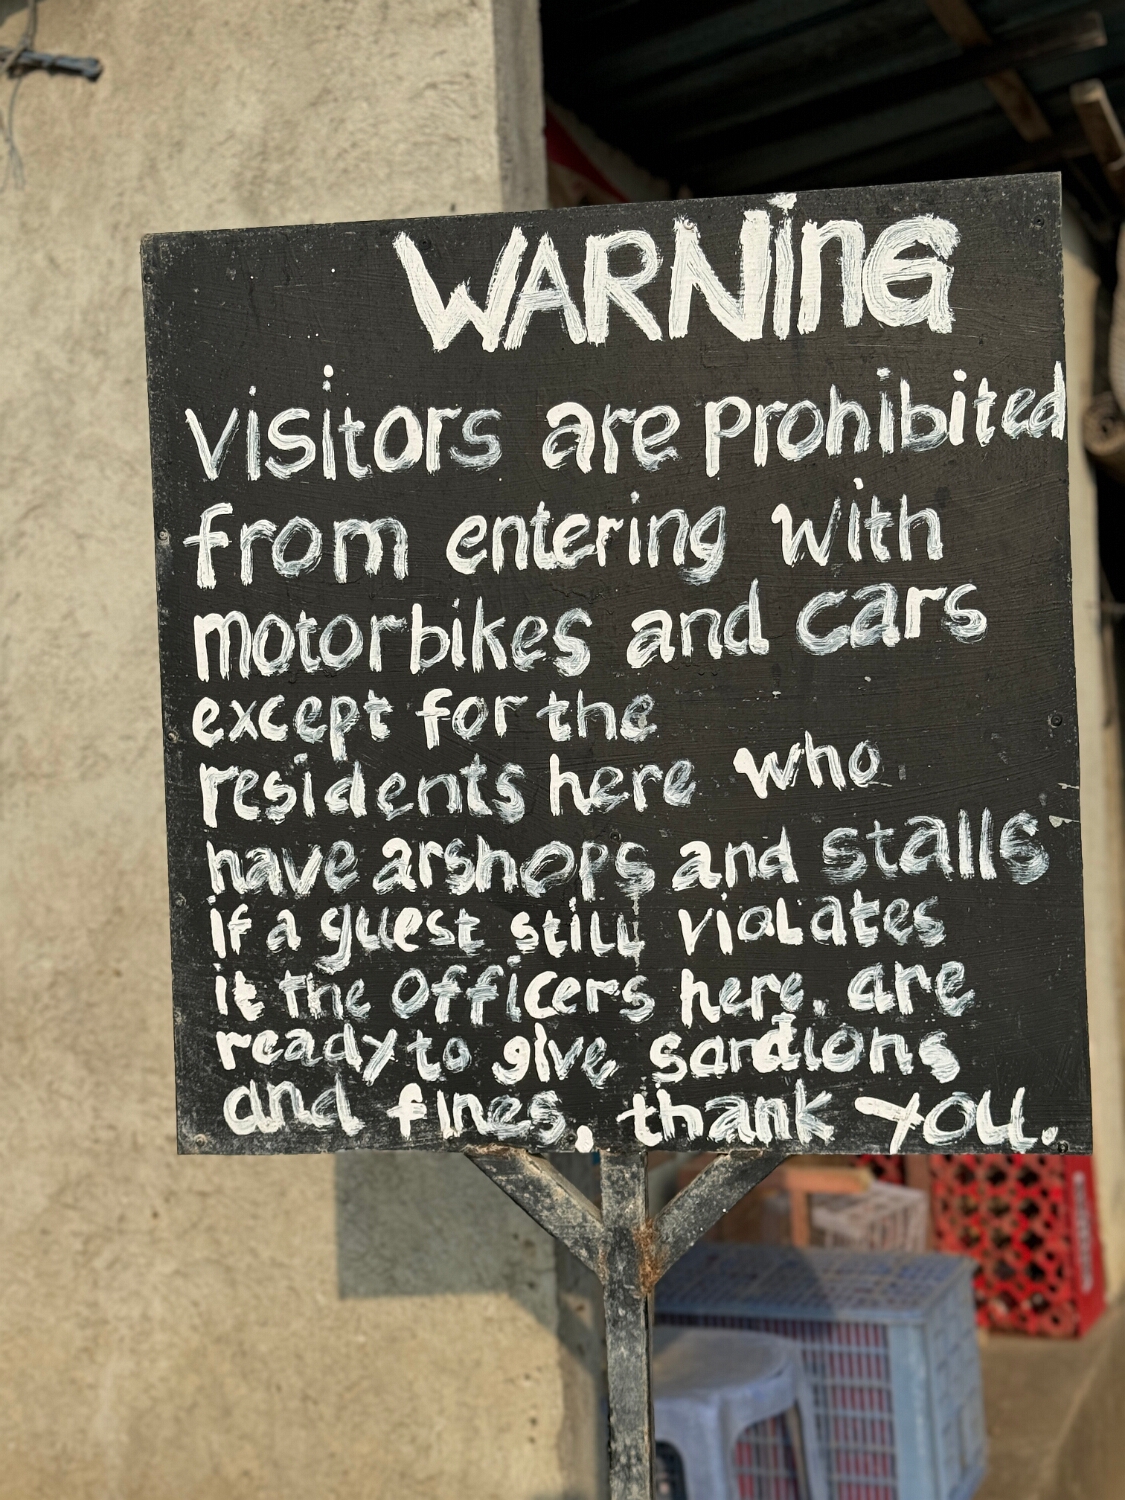 WARNiNG
visitors are prohibited
from entering with
motorbikes and cars
except for the
residents here who
have arshops and stalls
if a guest still violates
it the officers here. are
ready to give sandions
and fines. thank you.